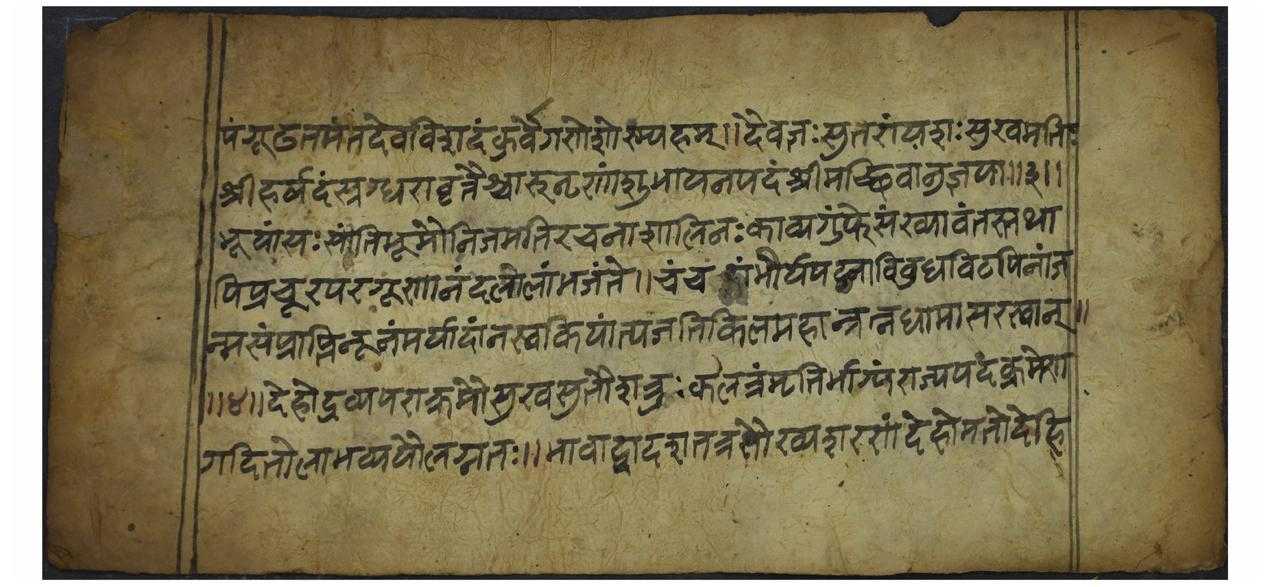 पंगूढतमंतदेवविशदंकुर्वेगणेशोस्म्यहम्॥दैवज्ञःसुतरांयशःसुखमतिः
श्रीहर्षदंस्रग्धरावृत्तैश्चारुनृणांशुभायनपदंश्रीमच्छिवानुज्ञया॥३॥
भूयांसःसंतिभूमौनिजमतिरचनाशालिनःकाव्यगुंफेसंख्यावंतस्तथा
पिप्रचूरपरगूणानंदलोलांभजंते॥चंच गांभीर्यपद्माविबुधविटपिनांज
न्मसंप्राप्तिनूनंमर्यादांनस्वकियांत्यजतिकिलमहान्त्रत्नधामासरस्वान्॥
॥४॥देहोद्रव्यपराक्रमौसुखसुतौशत्रुःकलत्रंमृतिर्भाग्यंराज्यपदंक्रमेण
गदितोलाभव्ययौलग्नतः॥भावाद्वादशतत्रसौख्यशरणंदेहोमतोदेहि